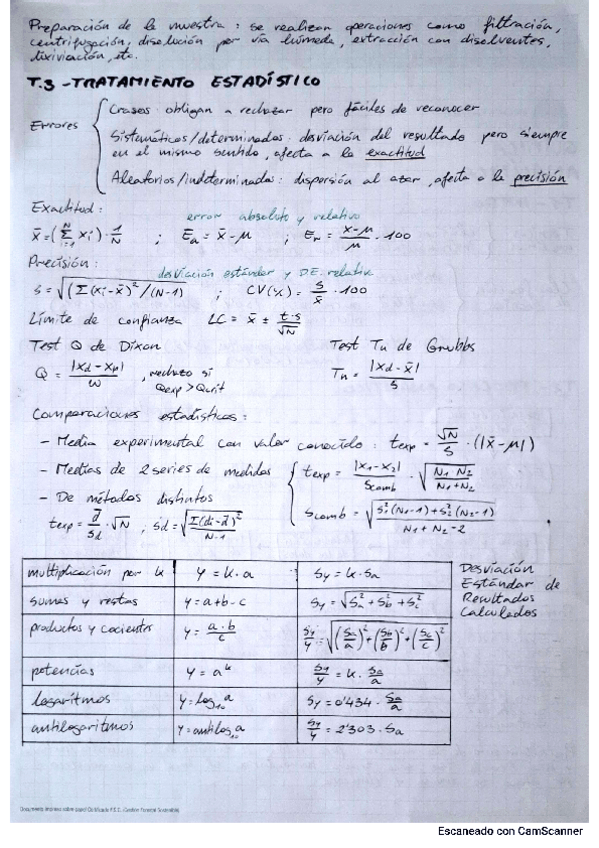 Preparación de la muestra: se realizan operaciones como filtración,
centrifugación, disolución por vía húmeda, extracción con disolventes,
lixiviación, etc.
T.3 - TRATAMIENTO ESTADÍSTICO
Errores
Crasos: obligan a rechazar pero fáciles de reconocer
Sistemáticos/determinados: desviación del resultado pero siempre
en el mismo sentido, afecta a la exactitud
Aleatorios/indeterminados: dispersión al azar, afecta a la precisión
Exactitud: error absoluto y relativo
x̄ = (Σ xi) · 1/N ; Ea = x̄ - μ ; Er = x-μ/μ · 100
Precisión: desviación estándar y DE relativa
s = √(Σ(xi-x̄)²/(N-1) ; CV(%) = s/x̄ · 100
Límite de confianza LC = x̄ ± t·s/√N
Test Q de Dixon Test Tn de Grubbs
Q = |xd - xp|/w , rechazo si Qexp > Qcrit Tn = |xd - x̄|/s
Comparaciones estadísticas:
- Media experimental con valor conocido: texp = √N/s · (|x̄ - μ|)
- Medias de 2 series de medidas texp = |x1 - x2|/scomb · √N1 N2/N1+N2
- De métodos distintos scomb = √s1²(N1-1)+s2²(N2-1)/N1+N2-2
texp = d̄/sd · √N ; sd = √Σ(di-d̄)²/N-1
multiplicación por k y = k·a sy = k·sa
sumas y restas y = a+b-c sy = √sa²+sb²+sc²
productos y cocientes y = a·b/c sy/y = √(sa/a)²+(sb/b)²+(sc/c)²
potencias y = aᵏ sy/y = k · sa/a
logaritmos y = log₁₀ a sy = 0'434 · sa/a
antilogaritmos y = antilog₁₀ a sy/y = 2'303 · sa
Desviación
Estándar de
Resultados
Calculados
Escaneado con CamScanner